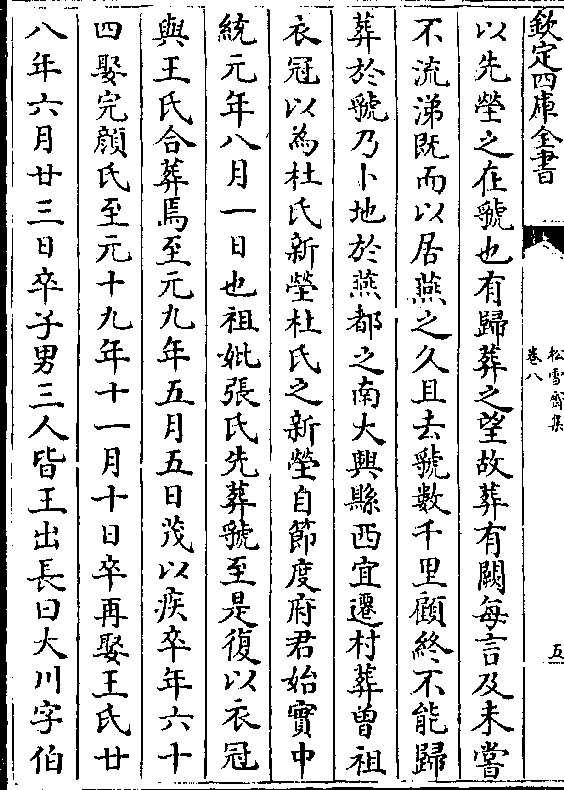 欽定四庫全書
松雪齋集
卷八
五
以先塋之在虢也有歸葬之望故葬有闕每言及未嘗
不流涕既而以居燕之久且去虢數千里顧終不能歸
葬於虢乃卜地於燕都之南大興縣西宜遷村葬曾祖
衣冠以為杜氏新塋杜氏之新塋自節度府君始實中
統元年八月一日也祖妣張氏先葬虢至是復以衣冠
與王氏合葬焉至元九年五月五日茂以疾卒年六十
四娶完顔氏至元十九年十一月十日卒再娶王氏廿
八年六月廿三日卒子男三人皆王出長曰大川字伯